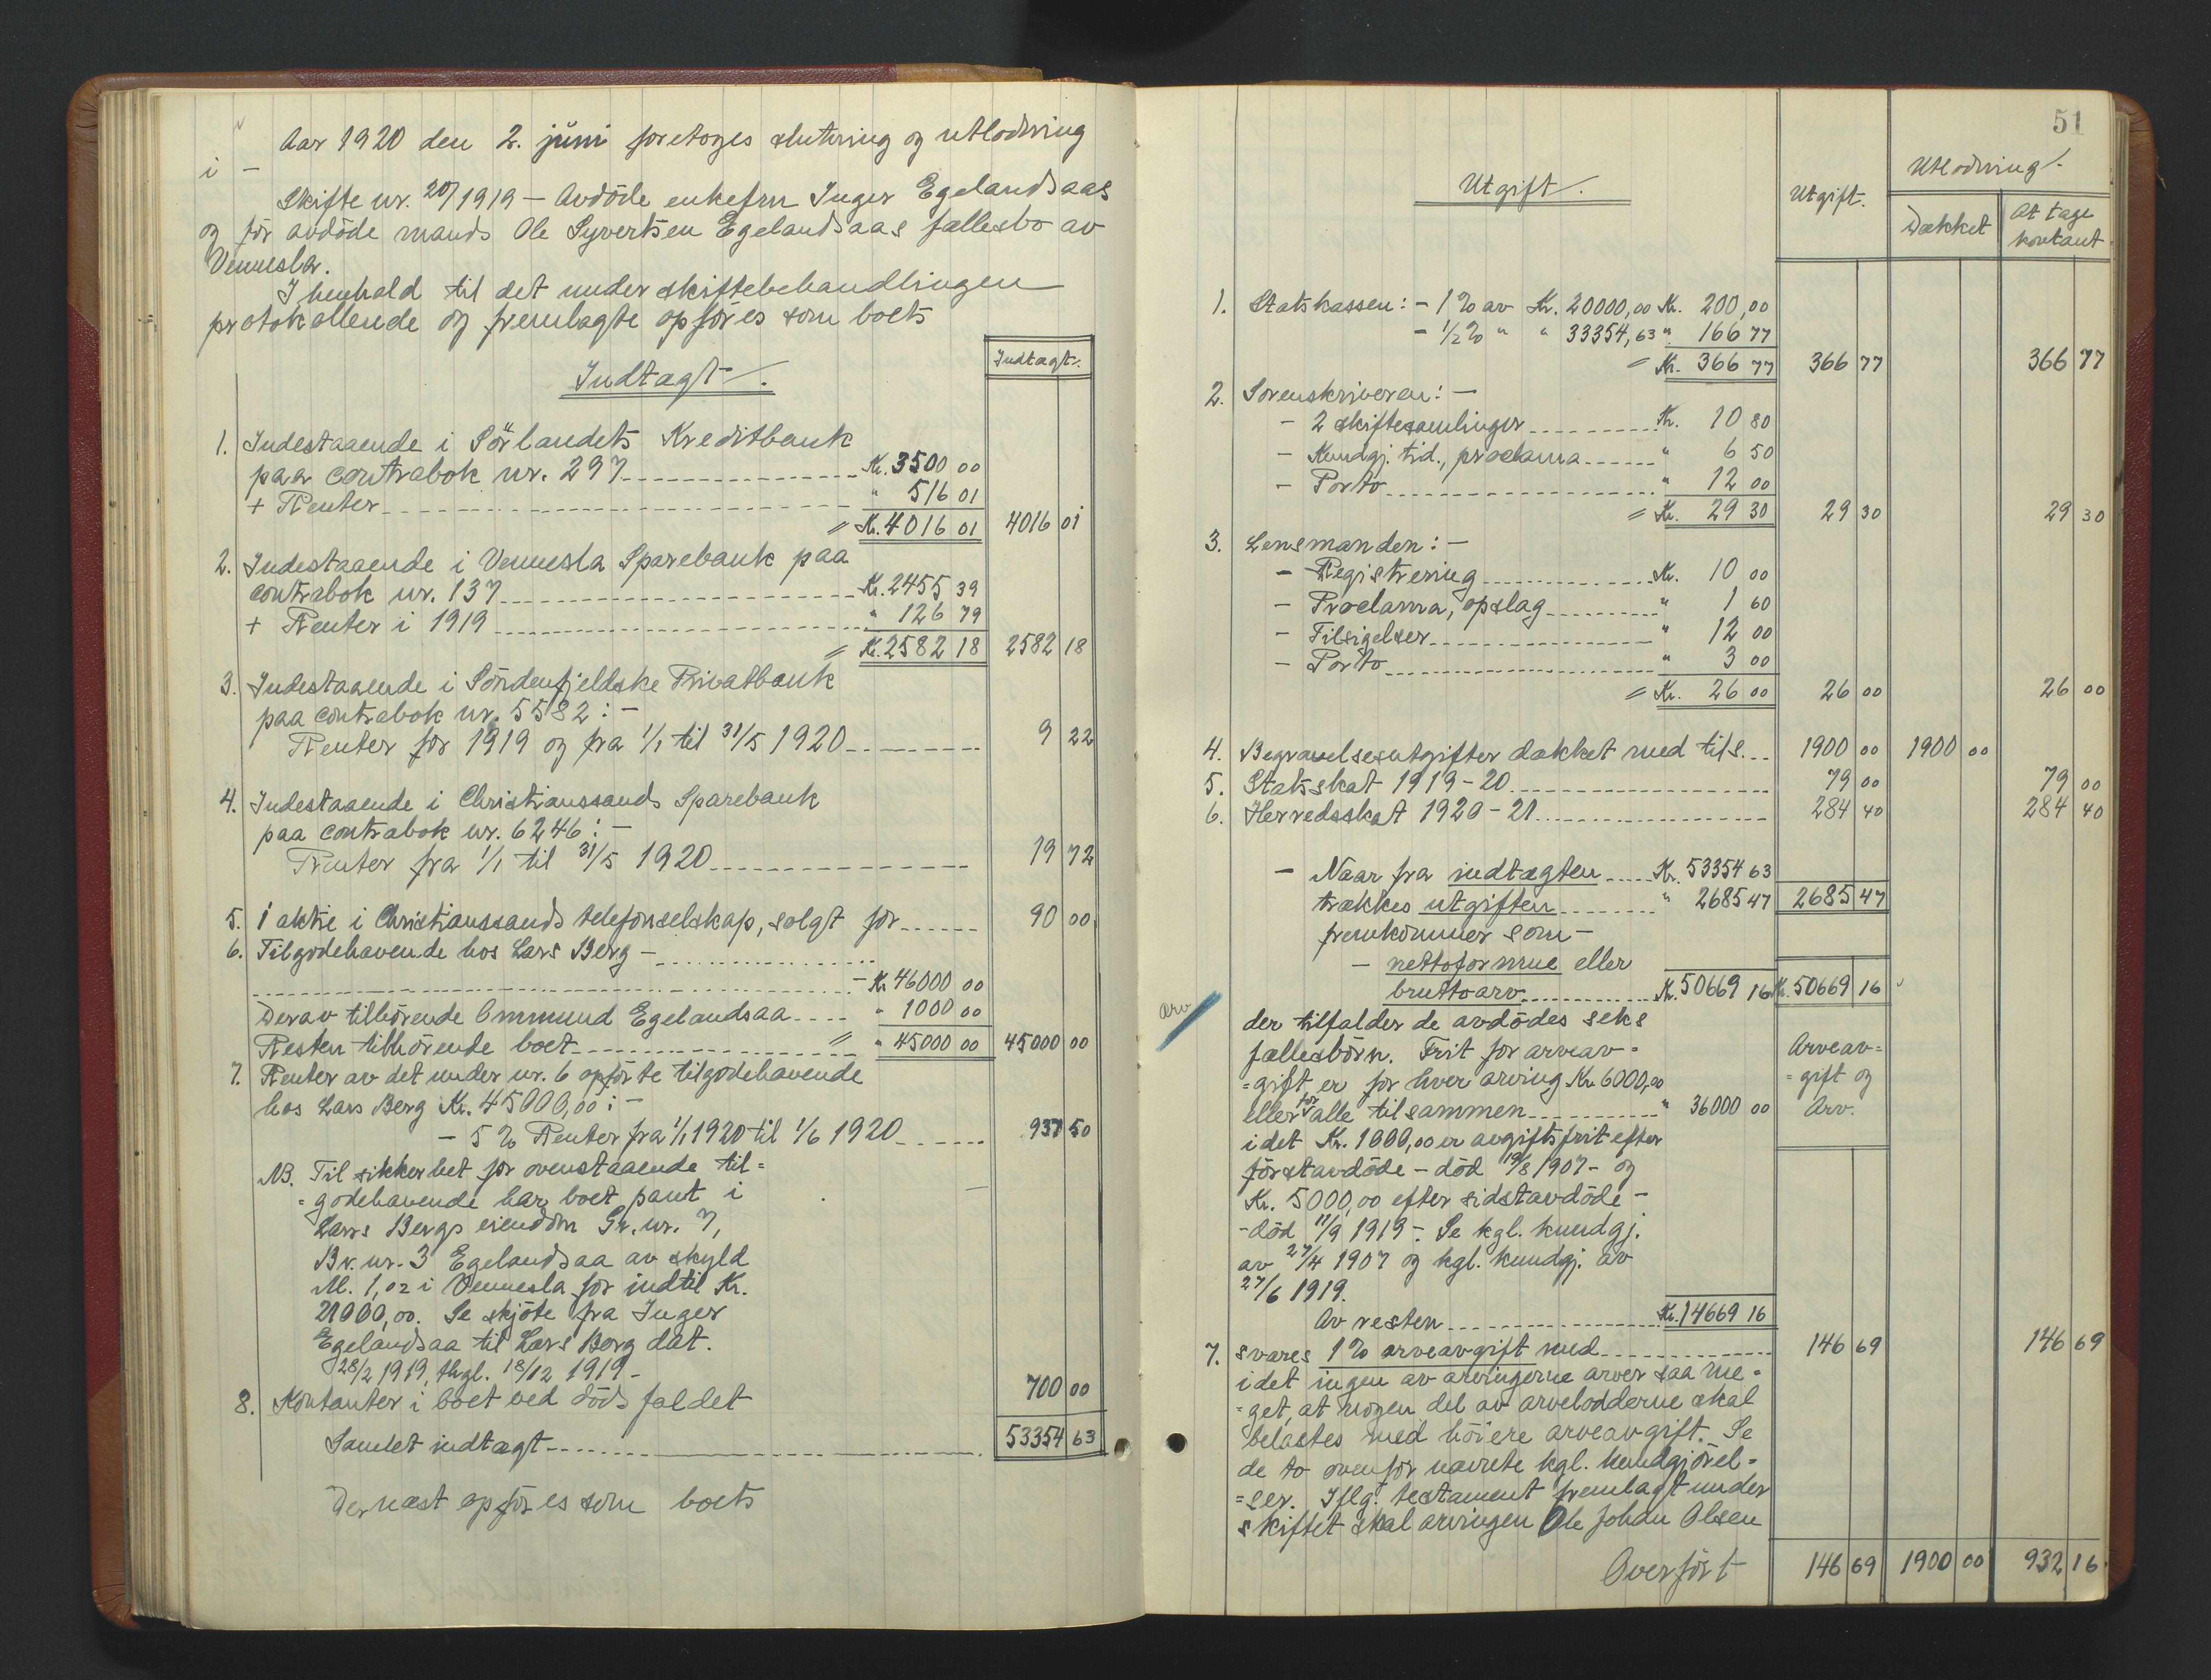 Aar 1920 den 2. juni foretoges slutning og utlodning
i –
Skifte nr. 20/1919 – Avdöde enkefru Inger Egelandsaas
og för avdöde mands Ole Syvertsen Egelandsaas fællesbo av
Vennesla.
I henhold til det under skiftebehandlingen
protokollerede og fremlagte opföres som boets
Indtægt.
Indtægt.
1. Indestaaende i Sörlandets Kreditbank
paa contrabok nr. 297 Kr. 3500 00
+ Renter " 516 01
= Kr. 4016 01 4016 01
2. Indestaaende i Vennesla Sparebank paa
contrabok nr. 137 Kr. 2455 39
+ Renter i 1919 " 126 79
= Kr. 2582 18 2582 18
3. Indestaaende i Söndenfjeldske Privatbank
paa contrabok nr. 5582 : –
Renter for 1919 og fra 1/1 til 31/5 1920 9 22
4. Indestaaende i Christianssands Sparebank
paa contrabok nr. 6246 : –
Renter fra 1/1 til 31/5 1920 19 72
5. 1 aktie i Christianssands telefonselskap, solgt for 90 00
6. Tilgodehavende hos Lars Berg –
– Kr. 46000 00
Derav tilhörende Ommund Egelandsaa " 1000 00
Resten tilhörende boet = " 45000 00 45000 00
7. Renter av det under nr. 6 opförte tilgodehavende
hos Lars Berg Kr. 45000,00 : –
– 5 % Renter fra 1/1 1920 til 1/6 1920 937 50
NB. Til sikkerhet for ovenstaaende til=
=godehavende har boet pant i
Lars Bergs eiendom Gr. nr. 7,
Br. nr. 3 Egelandsaa av skyld
M. 1,02 i Vennesla for indtil Kr.
21000,00. Se skjöte fra Inger
Egelandsaa til Lars Berg dat.
28/2 1919, thgl. 18/12 1919 –
8. Kontanter i boet ved dödsfaldet 700 00
Samlet indtægt 53354 63
Dernæst opföres som boets
51
Utgift.
Utgift.
Utlodning.
Dækket
At tage
kontant
1. Statskassen: – 1 % av Kr. 20000,00 Kr. 200,00
– 1/2 % " " 33354,63 " 166 77
= Kr. 366 77 366 77 366 77
2. Sorenskriveren: –
– 2 skiftesamlinger Kr. 10 80
– Kundgj. tid., proclama " 6 50
– Porto " 12 00
= Kr. 29 30 29 30 29 30
3. Lensmanden: –
– Registrering Kr. 10 00
– Proclama, opslag " 1 60
– Tilsigelser " 12 00
– Porto " 3 00
= Kr. 26 00 26 00 26 00
4. Begravelsesutgifter dækket med tils. 1900 00 1900 00
5. Statsskat 1919–20 79 00 79 00
6. Herredsskat 1920–21 284 40 284 40
– Naar fra indtægten Kr. 53354 63
trækkes utgiften " 2685 47 2685 47
fremkommer som –
– nettoformue eller
bruttoarv Kr. 50669 16 Kr. 50669 16
arv
der tilfalder de avdödes seks
fællesbörn. Frit for arveav=
=gift er for hver arving Kr. 6000,00
eller for alle tilsammen " 36000 00
idet Kr. 1000,00 er avgiftsfrit efter
förstavdöde – död 19/8 1907 – og
Kr. 5000,00 efter sidstavdöde –
– död 11/9 1919 –. Se kgl. kundgj.
av 27/4 1907 og kgl. kundgj. av
27/6 1919.
Arveav=
=gift og
Arv.
Av resten Kr. 14669 16
7. svares 1 % arveavgift med 146 69 146 69
idet ingen av arvingerne arver saa me=
=get, at nogen del av arvelodderne skal
belastes med höiere arveavgift. Se
de to ovenför nævnte kgl. kundgjörel=
=ser. Iflg. testament fremlagt under
skiftet skal arvingen Ole Johan Olsen
Overfört 146 69 1900 00 932 16